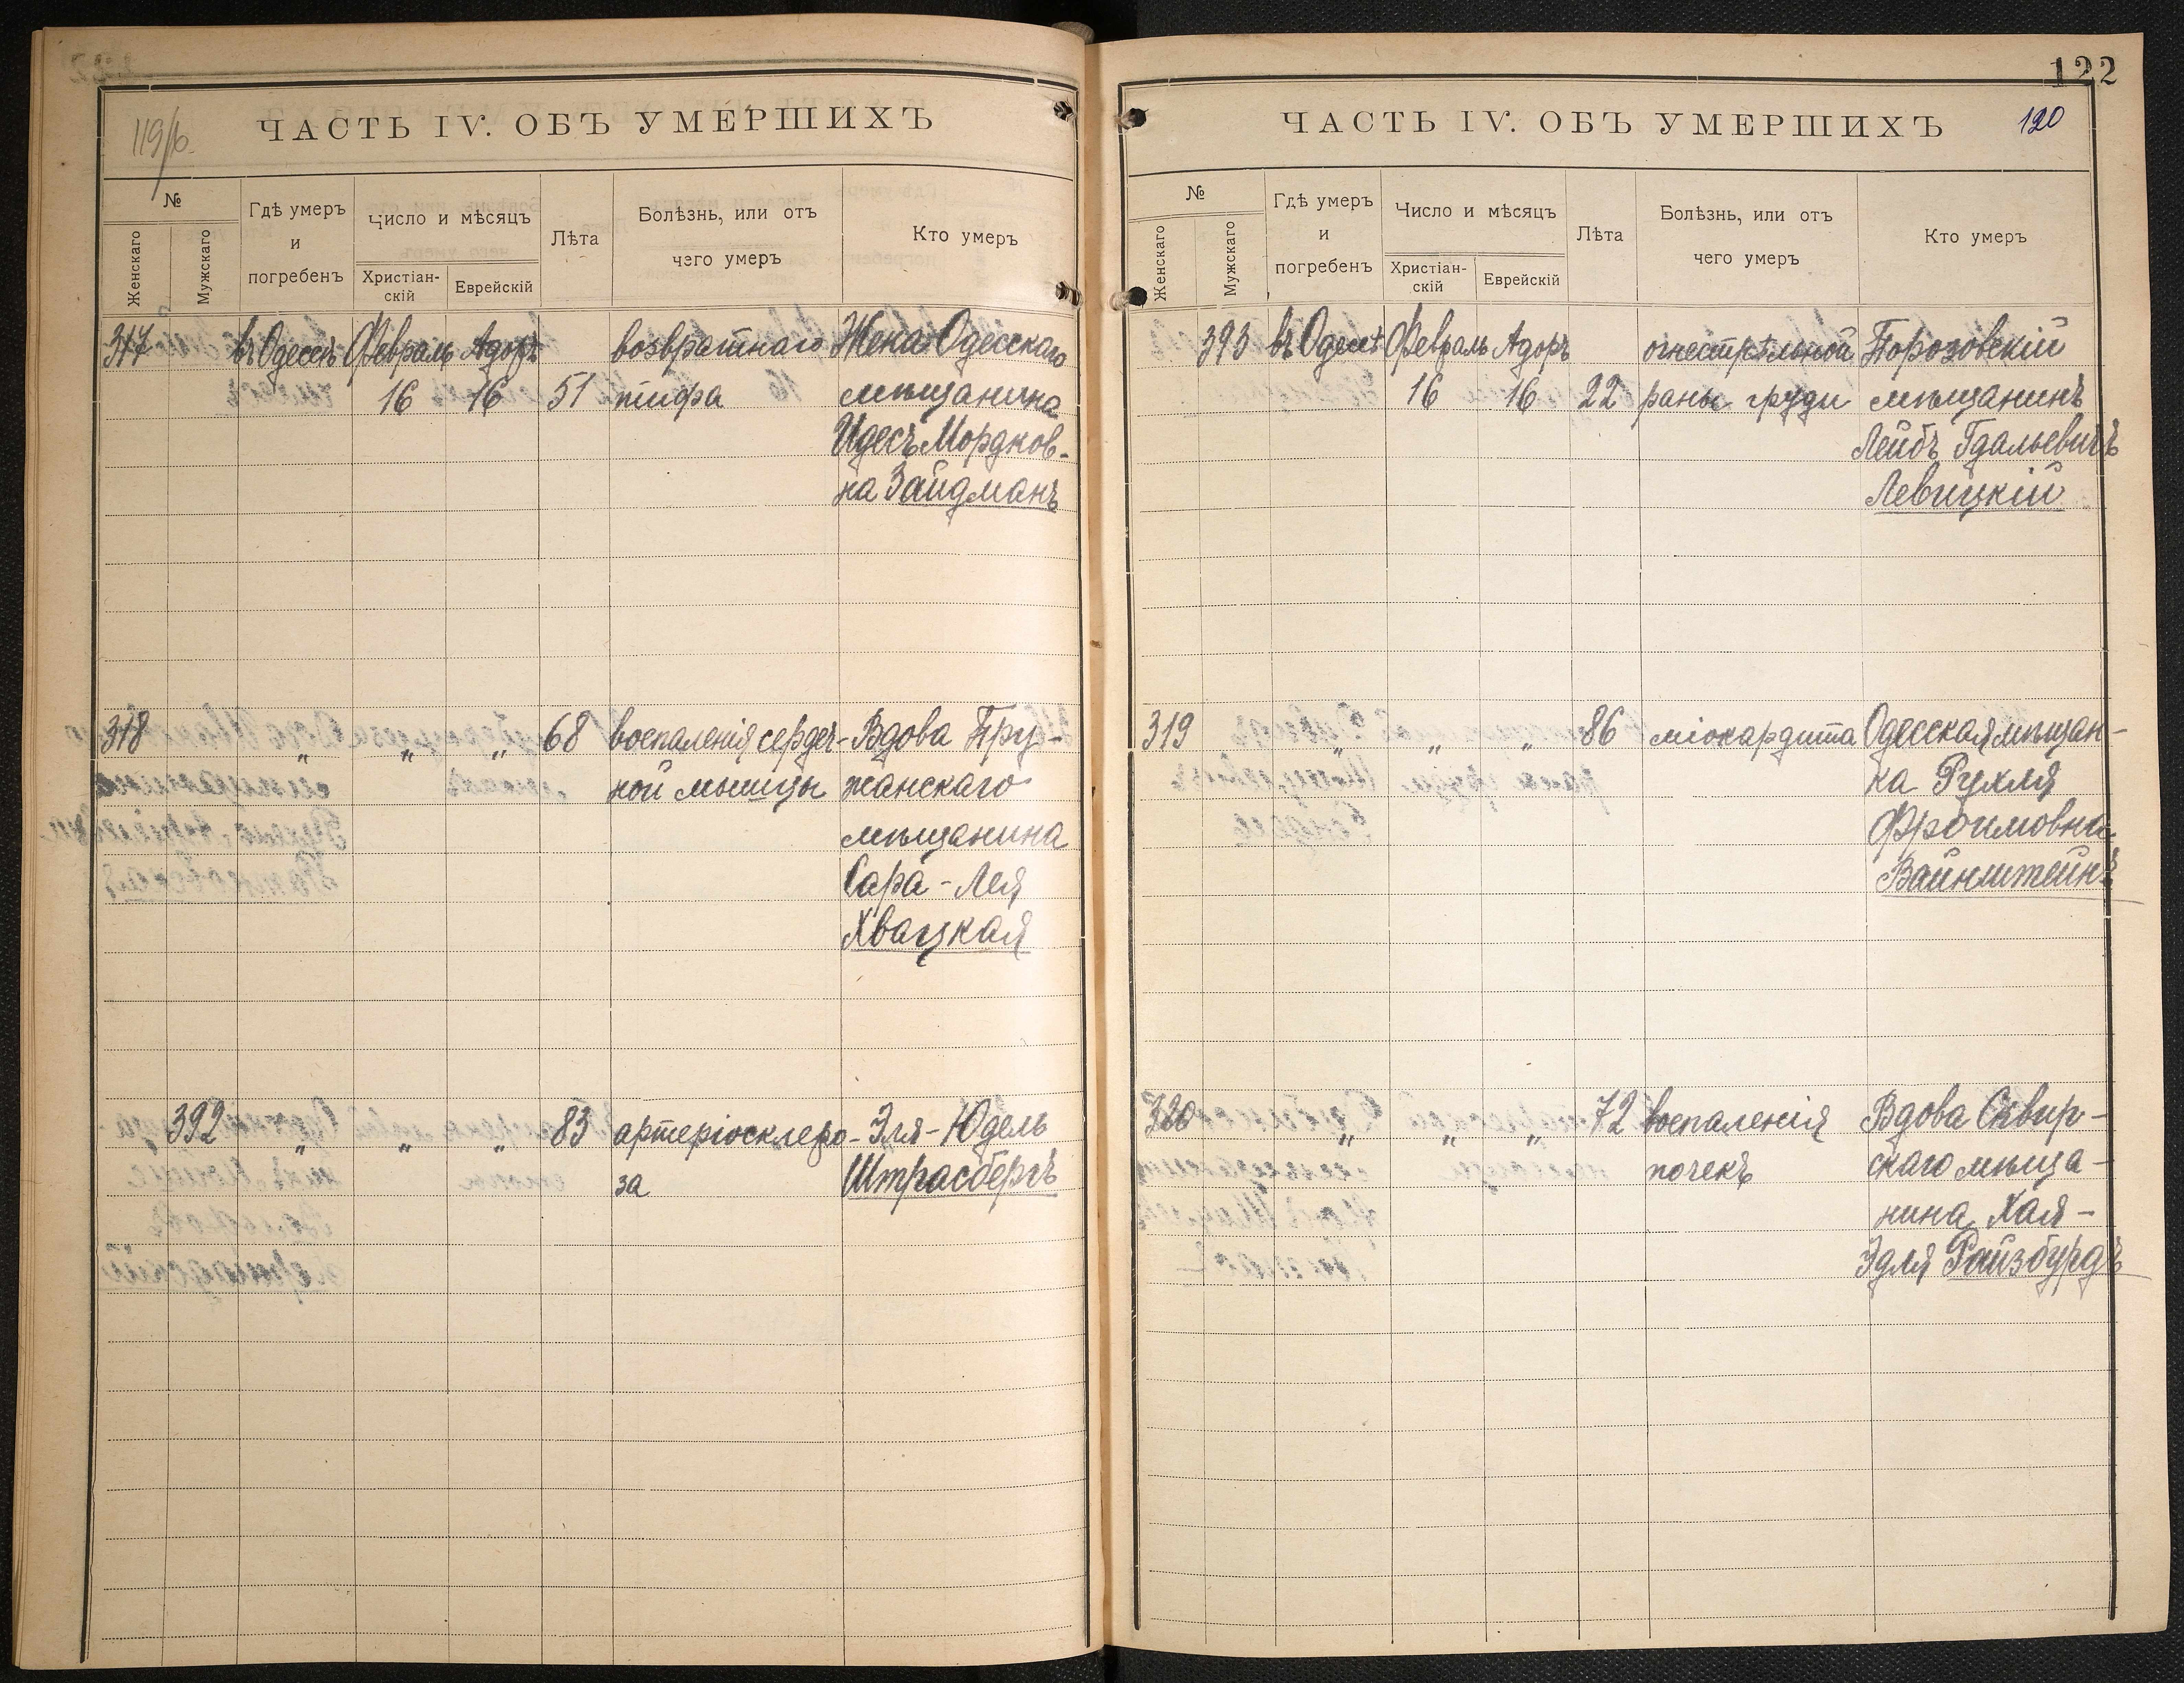 119/b.
ЧАСТЬ IV. ОБЪ УМЕРШИХЪ
№
Женскаго
Мужскаго
Гдѣ умеръ
и
погребенъ
Число и мѣсяцъ
Христіан-
скій
Еврейскій
Лѣта
Болѣзнь, или отъ
чего умеръ
Кто умеръ
317 въ Одессѣ Февраль Адоръ возвратнаго Жена Одесскаго
16 16 51 тифа мѣщанина
Идесъ Мордков-
на Зайдманъ
318 " " " 68 воспаленія сердеч- Вдова Пру-
ной мышцы жанскаго
мѣщанина
Сара-Лея
Хвацкая
392 " " " 83 артеріосклеро- Эля-Юдель
за Штрасбергъ
122
ЧАСТЬ IV. ОБЪ УМЕРШИХЪ
120
№
Женскаго
Мужскаго
Гдѣ умеръ
и
погребенъ
Число и мѣсяцъ
Христіан-
скій
Еврейскій
Лѣта
Болѣзнь, или отъ
чего умеръ
Кто умеръ
393 въ Одессѣ Февраль Адоръ огнестрѣльной Порозовскій
16 16 22 раны груди мѣщанинъ
Лейбъ Гдальевичъ
Левицкій
319 " " " 86 міокардита Одесская мѣщан-
ка Рухля
Фроимовна
Вайнштейнъ
320 " " " 72 воспаленія Вдова Сквир-
почекъ скаго мѣща-
нина Хая-
Эдля Райзбурдъ